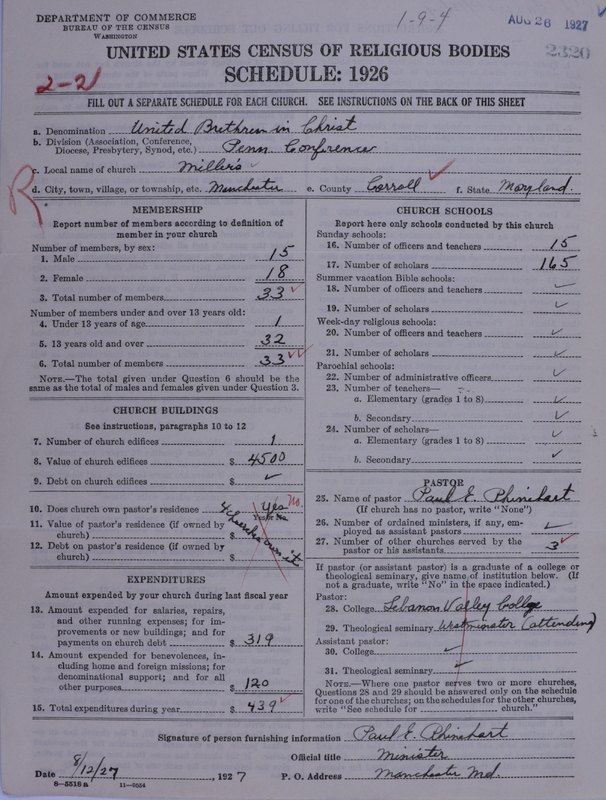 DEPARTMENT OF COMMERCE
BUREAU OF THE CENSUS
WASHINGTON
1-9-4
AUG 26 1927
2320
UNITED STATES CENSUS OF RELIGIOUS BODIES
SCHEDULE: 1926
2-2
FILL OUT A SEPARATE SCHEDULE FOR EACH CHURCH. SEE INSTRUCTIONS ON THE BACK OF THIS SHEET
a. Denomination United Brethren in Christ
b. Division (Association, Conference, Diocese, Presbytery, Synod, etc.) Penn Conference
c. Local name of church Miller's
R
d. City, town, village, or township, etc. Manchester e. County Carroll f. State Maryland.
MEMBERSHIP
Report number of members according to definition of
member in your church
Number of members, by sex:
1. Male 15
2. Female 18
3. Total number of members 33
Number of members under and over 13 years old:
4. Under 13 years of age 1
5. 13 years old and over 32
6. Total number of members 33
NOTE.—The total given under Question 6 should be
same as the total of males and females given under Question 3.
CHURCH BUILDINGS
See instructions, paragraphs 10 to 12
7. Number of church edifices 1
8. Value of church edifices $ 4500
9. Debt on church edifices $
10. Does church own pastor's residence Yes No.
Yes or No
4 churches own it
11. Value of pastor's residence (if owned by
church) $
12. Debt on pastor's residence (if owned by
church) $
EXPENDITURES
Amount expended by your church during last fiscal year
13. Amount expended for salaries, repairs,
and other running expenses; for im-
provements or new buildings; and for
payments on church debt $ 319
14. Amount expended for benevolences, in-
cluding home and foreign missions; for
denominational support; and for all
other purposes $ 120
15. Total expenditures during year $ 439
CHURCH SCHOOLS
Report here only schools conducted by this church
Sunday schools:
16. Number of officers and teachers 15
17. Number of scholars 165
Summer vacation Bible schools:
18. Number of officers and teachers
19. Number of scholars
Week-day religious schools:
20. Number of officers and teachers
21. Number of scholars
Parochial schools:
22. Number of administrative officers
23. Number of teachers—
a. Elementary (grades 1 to 8)
b. Secondary
24. Number of scholars—
a. Elementary (grades 1 to 8)
b. Secondary
PASTOR
25. Name of pastor Paul E. Rhinehart
(If church has no pastor, write "None")
26. Number of ordained ministers, if any, em-
ployed as assistant pastors
27. Number of other churches served by the
pastor or his assistants 3
If pastor (or assistant pastor) is a graduate of a college or
theological seminary, give name of institution below. (If
not a graduate, write "No" in the space indicated.)
Pastor:
28. College Lebanon Valley College
29. Theological seminary Westminster (attending)
Assistant pastor:
30. College
31. Theological seminary
NOTE.—Where one pastor serves two or more churches,
Questions 28 and 29 should be answered only on the schedule
for one of the churches; on the schedules for the other churches,
write "See schedule for church."
Signature of person furnishing information Paul E. Rhinehart
Official title Minister
Date 8/12/27, 1927 P. O. Address Manchester Md.
8—5518a 11—9054